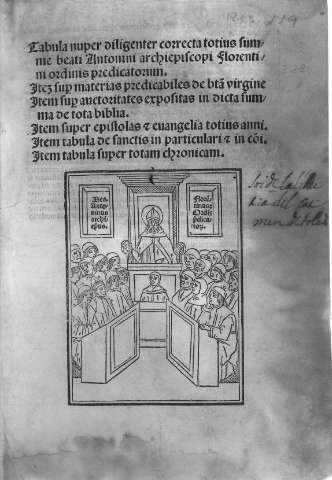 Tabula nuper diligenter correcta totius sum-
me beati Antonini archiepiscopi Florenti-
ni ordinis predicatorum.
Itez sup materias predicabiles de btā virgine
Item sup auctoritates expositas in dicta sum-
ma de tota biblia.
Item super epistolas ⁊ euangelia totius anni.
Item tabula de sanctis in particulari ⁊ in cōi.
Item tabula super totam chronicam.
Bea.
Anto-
ninus
archie
pus.
Flor.